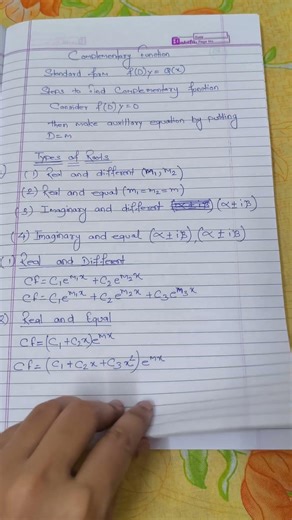 Complementary Function
Standard form f(D)y = Q(x)
Steps to find Complementary function
Consider f(D)y=0
then make auxillary equation by putting
D=m
Types of Roots
(1) Real and different (m₁, m₂)
(2) Real and equal (m₁=m₂=m)
(3) Imaginary and different (α±iβ)
(4) Imaginary and equal (α±iβ), (α±iβ)
(1) Real and Different
CF = C₁e^m₁x + C₂e^m₂x
CF = C₁e^m₁x + C₂e^m₂x + C₃e^m₃x
2) Real and Equal
CF=(C₁+C₂x)e^mx
CF=(C₁+C₂x+C₃x²)e^mx